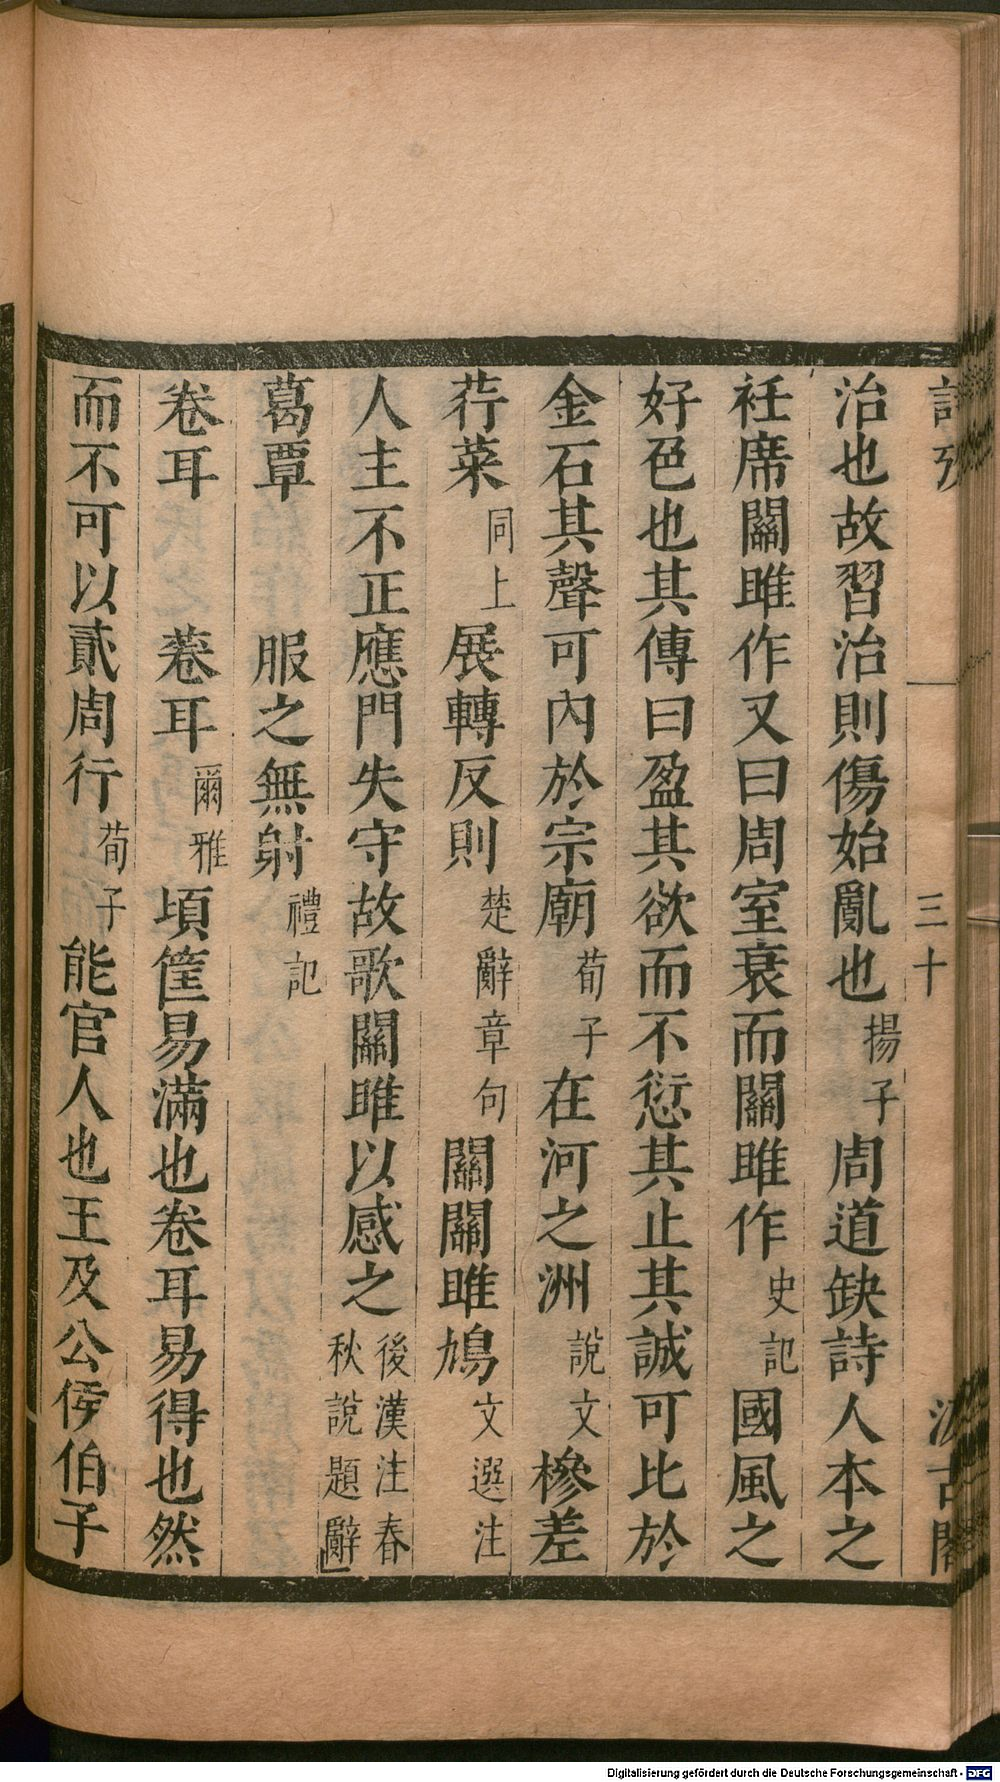 詩攷 三十 汲古閣
治也故習治則傷始亂也揚子周道缺詩人本之
衽席關雎作又曰周室衰而關雎作史記國風之
好色也其傳曰盈其欲而不愆其止其誠可比於
金石其聲可內於宗廟荀子在河之洲說文槮差
荇菜同上展轉反則楚辭章句關關雎鳩文選注
人主不正應門失守故歌關雎以感之後漢注春秋說題辭
葛覃 服之無射禮記
卷耳 菤耳爾雅頃筐易滿也卷耳易得也然
而不可以貳周行荀子能官人也王及公侯伯子
Digitalisierung gefördert durch die Deutsche Forschungsgemeinschaft - DFG